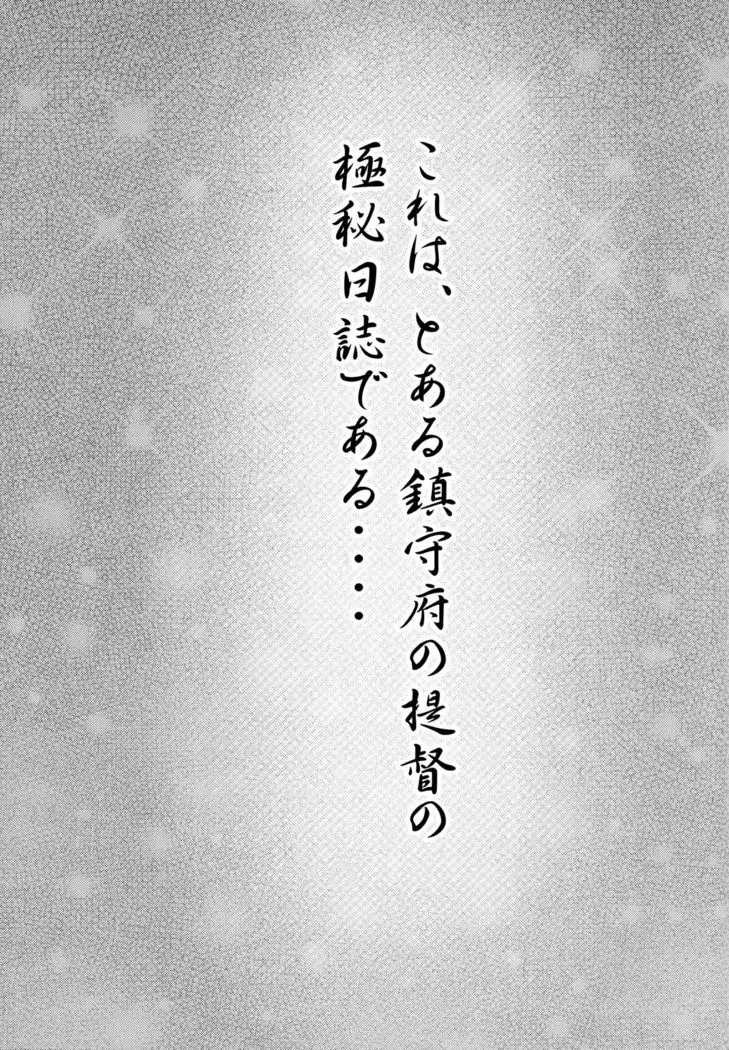 これは、とある鎮守府の提督の
極秘日誌である・・・・